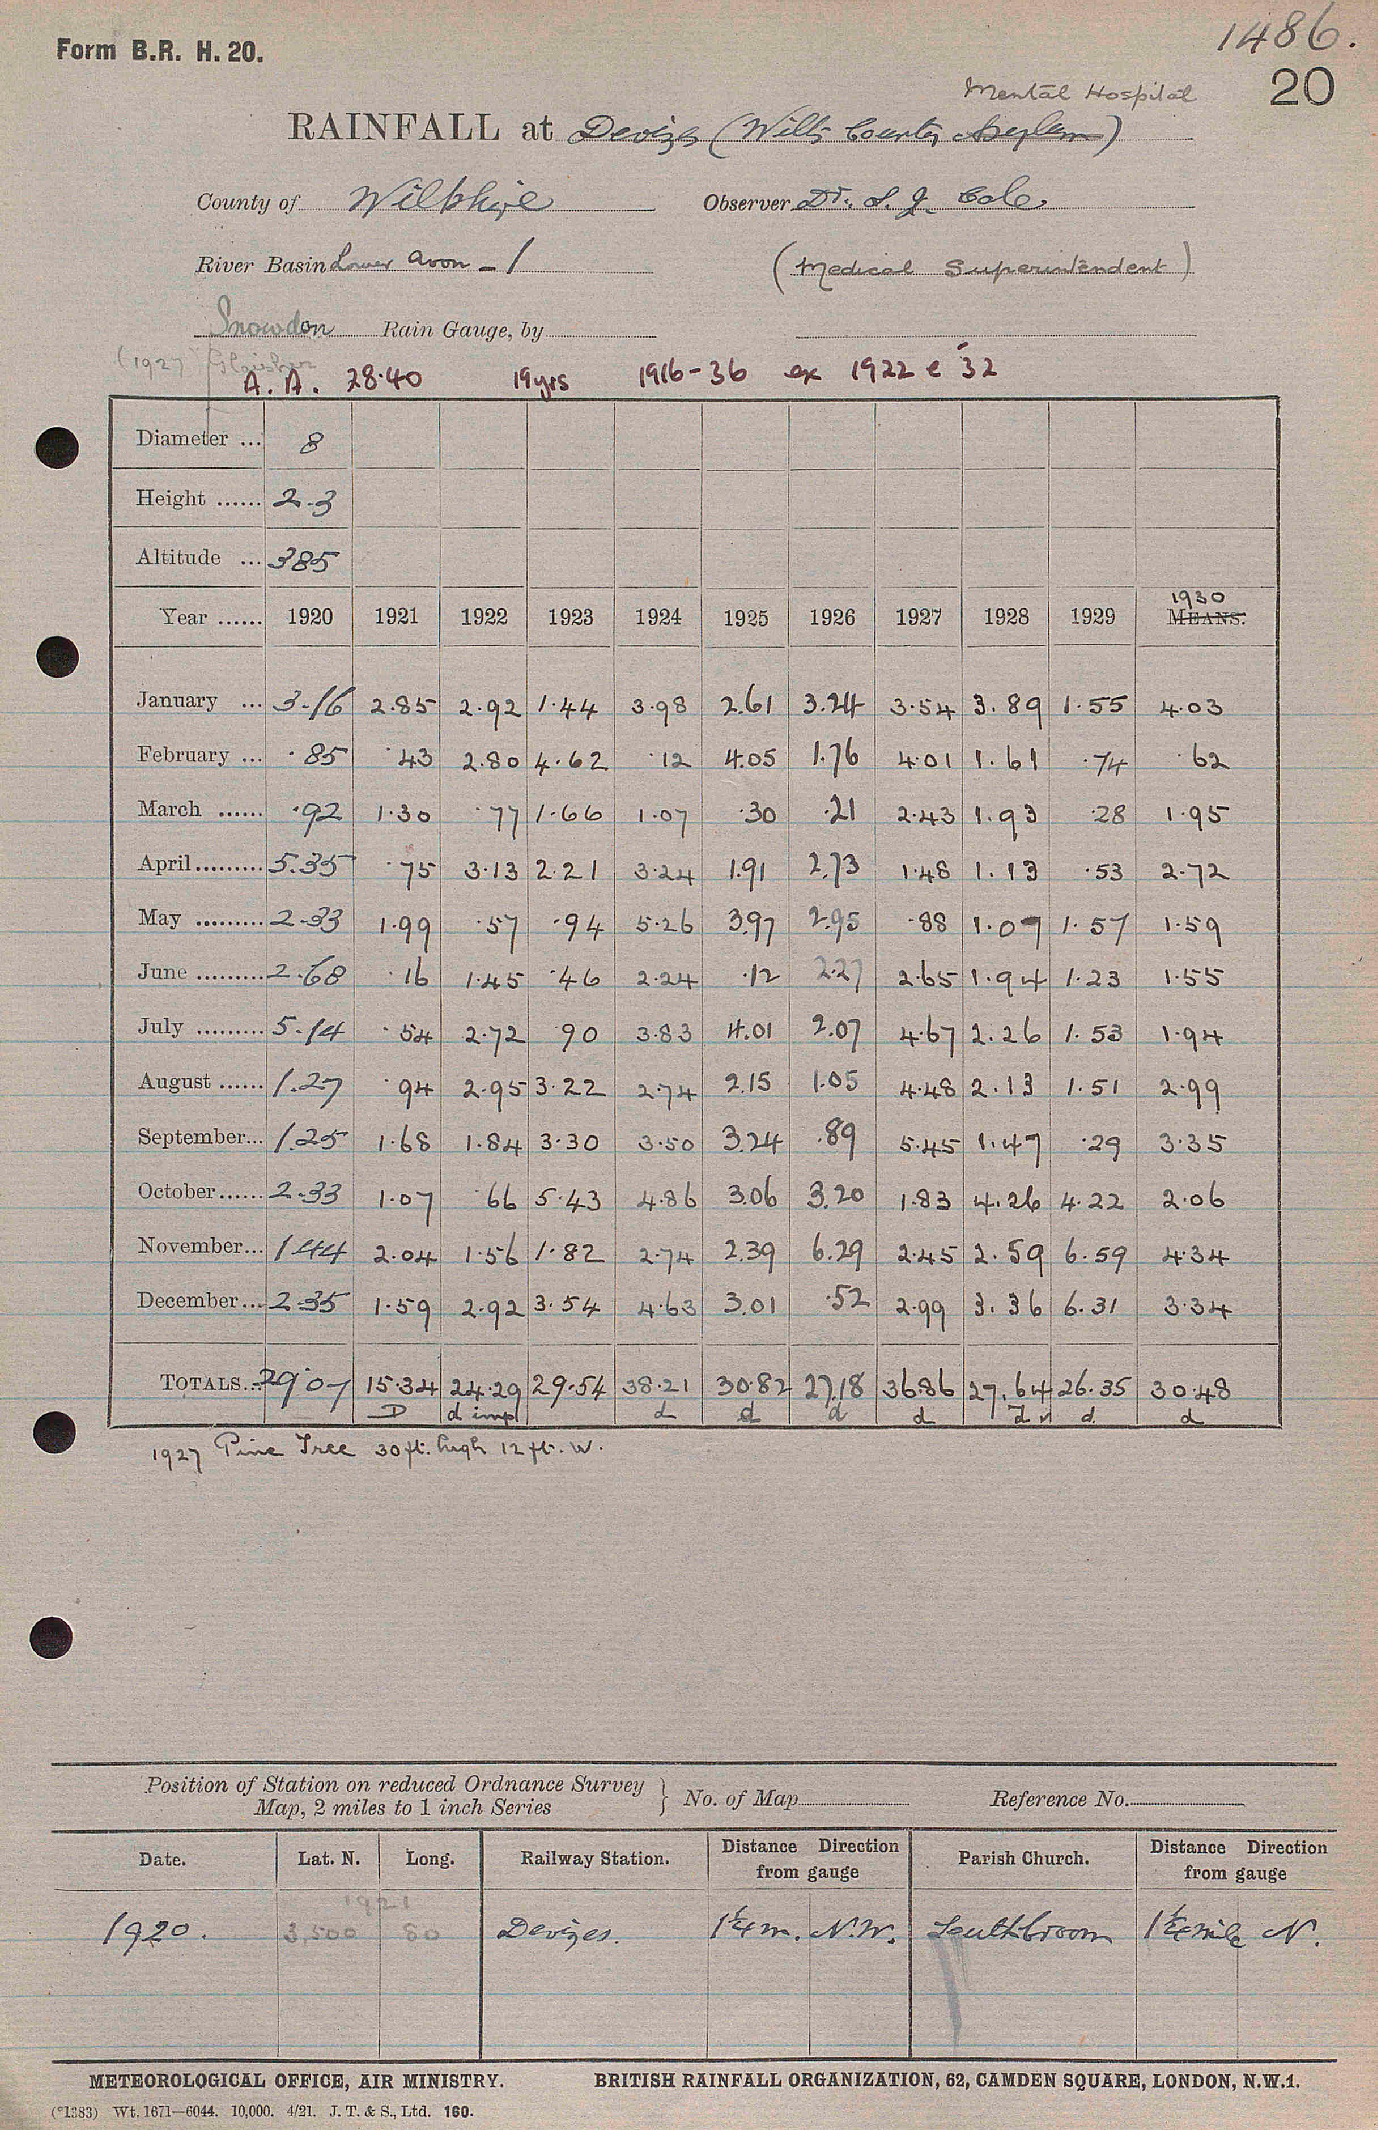 1486.
Form B.R. H. 20.
20
Mental Hospital
RAINFALL at Devizes (Wilts County Asylum)
County of Wiltshire Observer Dr. S. J. Cole
River Basin Lower Avon - 1 (Medical Superintendent)
Snowdon Rain Gauge, by
(1927)
A. A. 28.40 19yrs 1916-36 ex 1922 & '32
Diameter ... 8
Height ...... 2.3
Altitude ... 385
1930
Year ...... 1920 1921 1922 1923 1924 1925 1926 1927 1928 1929 MEANS.
January ... 3.16 2.85 2.92 1.44 3.98 2.61 3.24 3.54 3.89 1.55 4.03
February ... .85 .43 2.80 4.62 .12 4.05 1.76 4.01 1.61 .74 .62
March ...... .92 1.30 .77 1.66 1.07 .30 .21 2.43 1.93 .28 1.95
April......... 5.35 .75 3.13 2.21 3.24 1.91 2.73 1.48 1.13 .53 2.72
May ......... 2.33 1.99 .57 .94 5.26 3.97 2.95 .88 1.07 1.57 1.59
June ......... 2.68 .16 1.45 .46 2.24 .12 2.27 2.65 1.94 1.23 1.55
July ......... 5.14 .54 2.72 .90 3.83 4.01 2.07 4.67 2.26 1.53 1.94
August ...... 1.27 .94 2.95 3.22 2.74 2.15 1.05 4.48 2.13 1.51 2.99
September... 1.25 1.68 1.84 3.30 3.50 3.24 .89 5.45 1.47 .29 3.35
October...... 2.33 1.07 .66 5.43 4.86 3.06 3.20 1.83 4.26 4.22 2.06
November... 1.44 2.04 1.56 1.82 2.74 2.39 6.29 2.45 2.59 6.59 4.34
December... 2.35 1.59 2.92 3.54 4.63 3.01 .52 2.99 3.36 6.31 3.34
TOTALS... 29.07 15.34 24.29 29.54 38.21 30.82 27.18 36.86 27.64 26.35 30.48
D d impl d d d d d d
1927 Pine Tree 30 ft. high 12 ft. W.
Position of Station on reduced Ordnance Survey
Map, 2 miles to 1 inch Series } No. of Map Reference No.
Date. Lat. N. Long. Railway Station. Distance Direction from gauge Parish Church. Distance Direction from gauge
1921
1920. 3,500 80 Devizes. 1¼ m. N.W. Southbroom 1¼ mile N.
METEOROLOGICAL OFFICE, AIR MINISTRY. BRITISH RAINFALL ORGANIZATION, 62, CAMDEN SQUARE, LONDON, N.W.1.
(*1383) Wt. 1671—6044. 10,000. 4/21. J. T. & S., Ltd. 160.